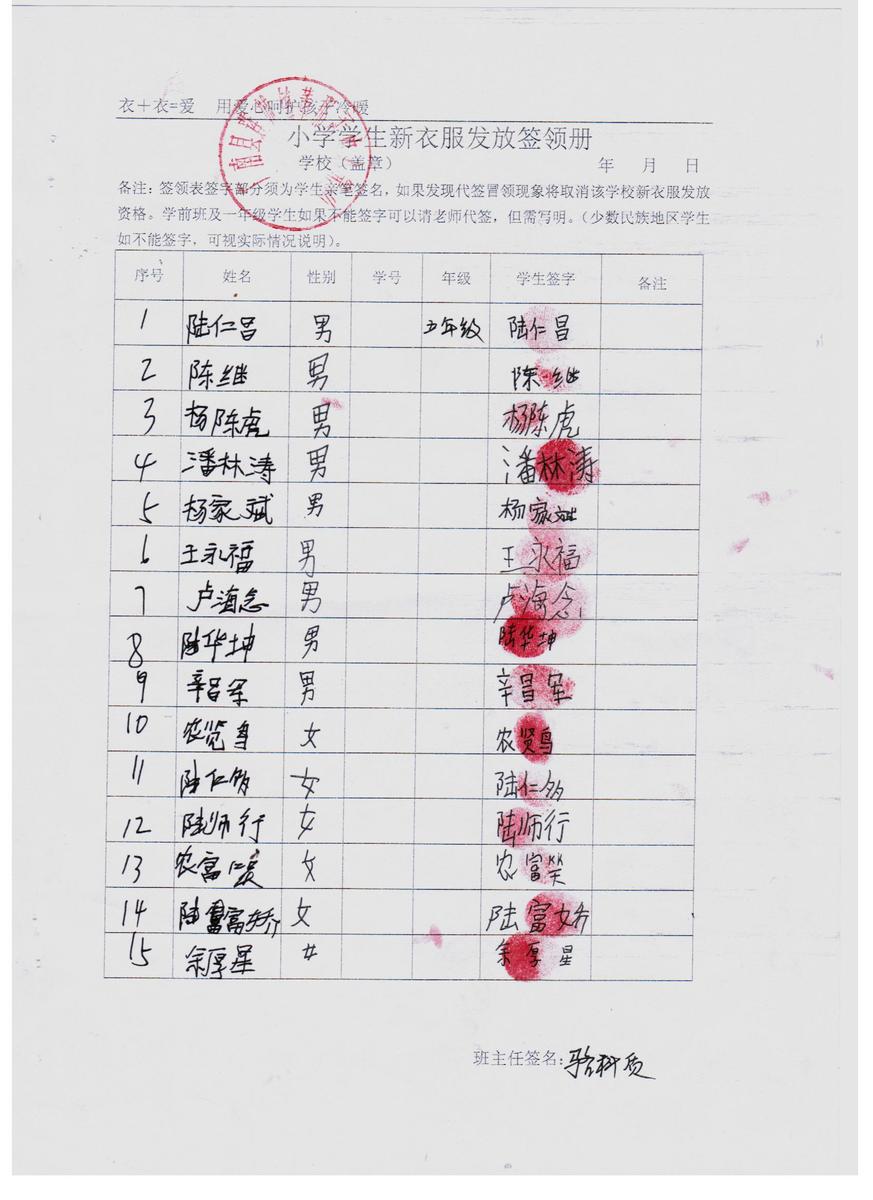 衣+衣=爱 用爱心呵护孩子冷暖
小学学生新衣服发放签领册
学校（盖章） 年 月 日
备注：签领表签字部分须为学生亲笔签名，如果发现代签冒领现象将取消该学校新衣服发放
资格。学前班及一年级学生如果不能签字可以请老师代签，但需写明。（少数民族地区学生
如不能签字，可视实际情况说明）。
序号 姓名 性别 学号 年级 学生签字 备注
1 陆仁昌 男 五年级 陆仁昌
2 陈继 男 陈继
3 杨陈虎 男 杨陈虎
4 潘林涛 男 潘林涛
5 杨家斌 男 杨家斌
6 王永福 男 王永福
7 卢海念 男 卢海念
8 陆华坤 男 陆华坤
9 辛昌军 男 辛昌军
10 农览鸟 女 农贤鸟
11 陆仁够 女 陆仁够
12 陆师行 女 陆师行
13 农富 女 农富笑
14 陆富娇 女 陆富娇
15 余厚星 女 余厚星
班主任签名：